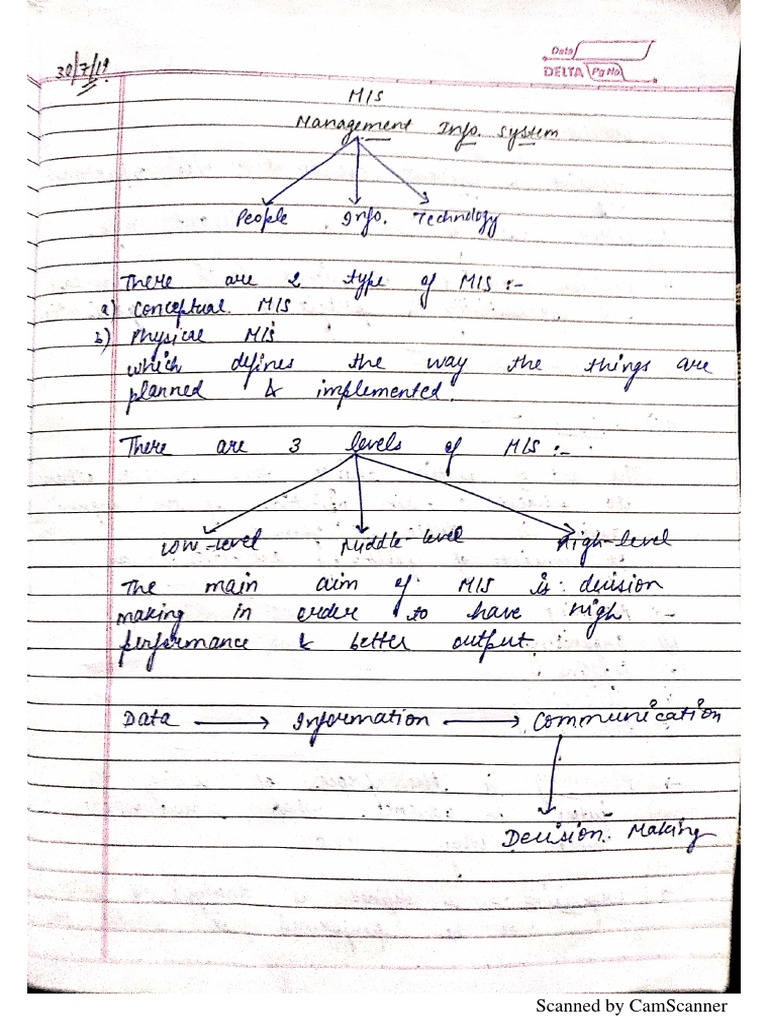 30/7/19
Date
DELTA Pg No
MIS
Management Info. System
People Info. Technology
There are 2 type of MIS :-
a) Conceptual MIS
b) Physical MIS
which defines the way the things are
planned & implemented.
There are 3 levels of MIS :-
Low-level Middle-level High-level
The main aim of MIS is decision
making in order to have high
performance & better output.
Data → Information → Communication
Decision Making
Scanned by CamScanner